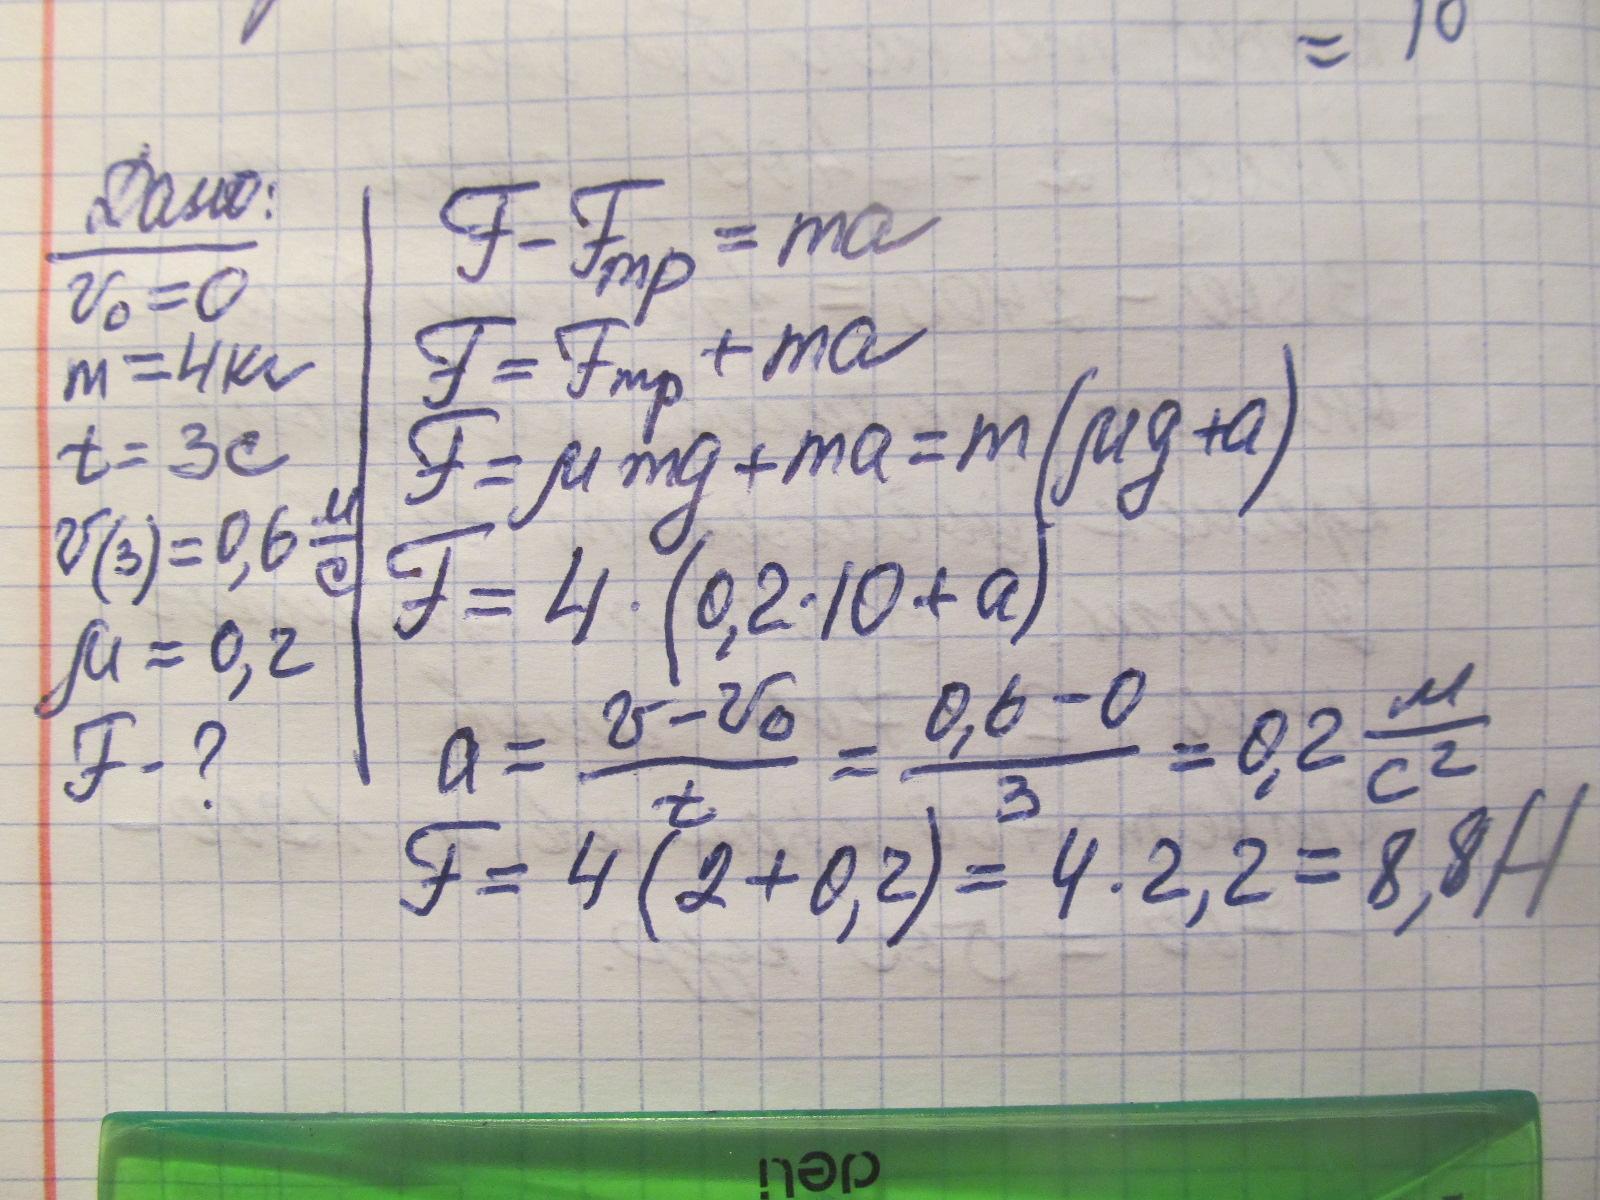 = 10
Дано:
v₀ = 0
m = 4кг
t = 3с
v(3) = 0,6 м/с
μ = 0,2
F - ?
F - Fтр = ma
F = Fтр + ma
F = μmg + ma = m(μg + a)
F = 4 · (0,2 · 10 + a)
a = (v - v₀)/t = (0,6 - 0)/3 = 0,2 м/с²
F = 4(2 + 0,2) = 4 · 2,2 = 8,8 Н
deli